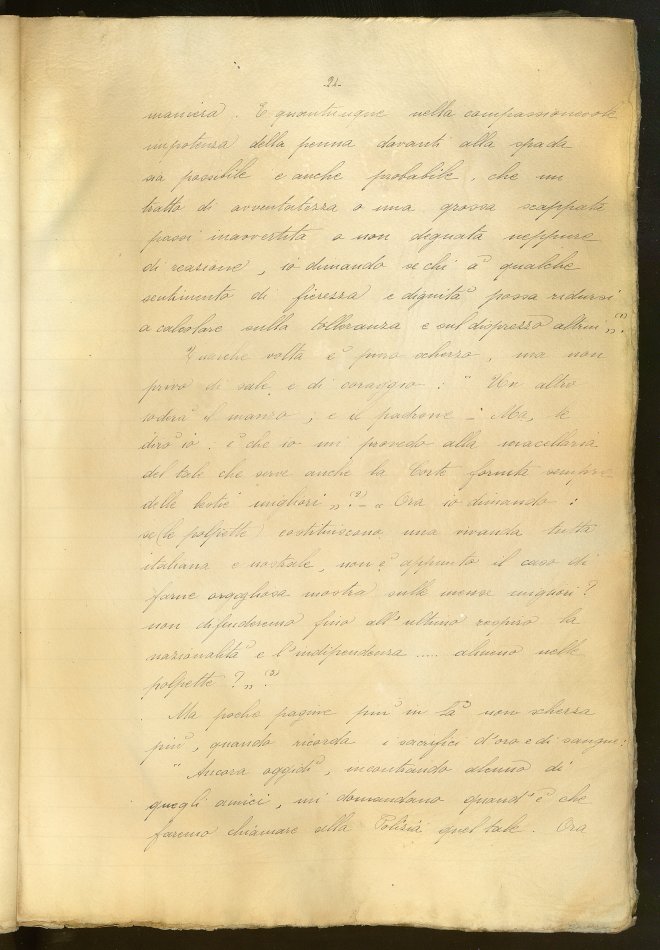 21.
maniera. E quantunque nella compassionevole
impotenza della penna davanti alla spada
sia possibile e anche probabile, che un
tratto di avventatezza o una grossa scappata
passi inavvertita o non degnata neppure
di reazione, io dimando se chi à qualche
sentimento di fierezza e dignità possa ridursi
a calcolare sulla tolleranza e sul disprezzo altrui „. (1)
E anche volta è puro scherzo, ma non
privo di sale e di coraggio: " Un altro
loderà il manzo; e il padrone - Ma, le
dirò io: è che io mi provedo alla macellaria
del tale che serve anche la Corte fornita sempre
delle bestie migliori „. (2) - " Ora io dimando:
se (le polpette) costituiscono una vivanda tutta
italiana e nostrale, non è appunto il caso di
farne orgogliosa mostra sulle mense migliori?
non difenderemo fino all'ultimo respiro la
nazionalità e l'indipendenza ..... almeno nelle
polpette? „. (3)
Ma poche pagine più in là non scherza
più, quando ricorda i sacrifici d'oro e di sangue:
" Ancora oggidì, incontrando alcuno di
quegli amici, mi domandano quand'è che
faremo chiamare alla Polizia quel tale. Ora